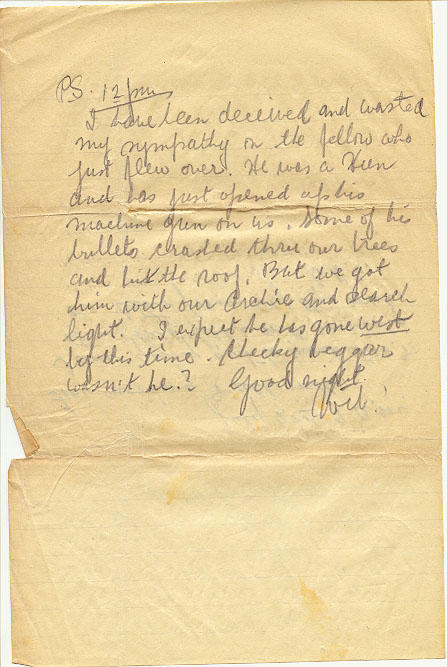 P.S. 12 pm
I have been deceived and wasted
my sympathy on the fellow who
just flew over. He was a Hun
and has just opened up his
machine gun on us. Some of his
bullets crashed thru our trees
and hit the roof. But we got
him with our Archies and search
light. I expect he has gone west
by this time. Cheeky beggar
wasn't he? Good night.